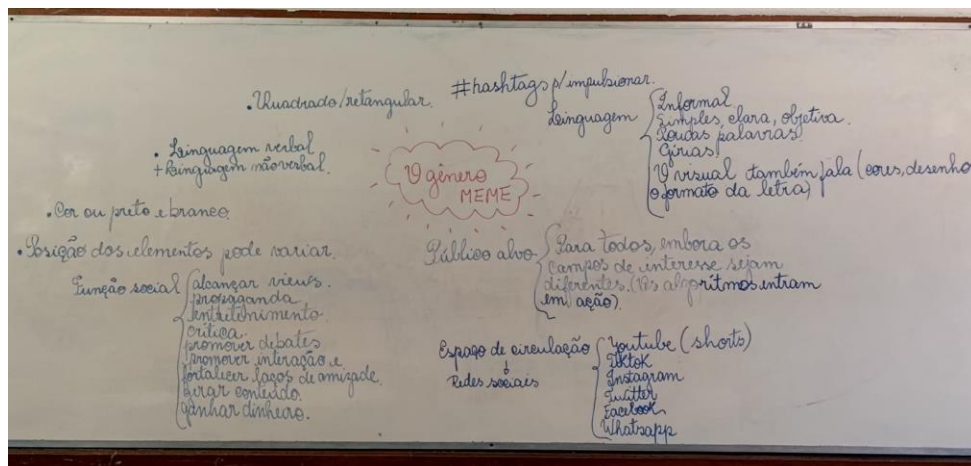 #hashtags p/ impulsionar.
• Quadrado/retangular.
Linguagem
Informal
Simples, clara, objetiva.
Poucas palavras.
Gírias.
O visual também fala (cores, desenho
o formato da letra)
• Linguagem verbal
+ Linguagem não verbal.
O gênero
MEME
• Cor ou preto e branco.
• Posição dos elementos pode variar.
Função social
alcançar views.
propaganda
entretenimento.
crítica.
promover debates
promover interação e
fortalecer laços de amizade.
gerar conteúdo.
ganhar dinheiro.
Público alvo
Para todos, embora os
campos de interesse sejam
diferentes. (Os algorítmos entram
em ação).
Espaço de circulação
Redes sociais
Youtube (shorts)
Tiktok
Instagram
Twitter
Facebook
Whatsapp